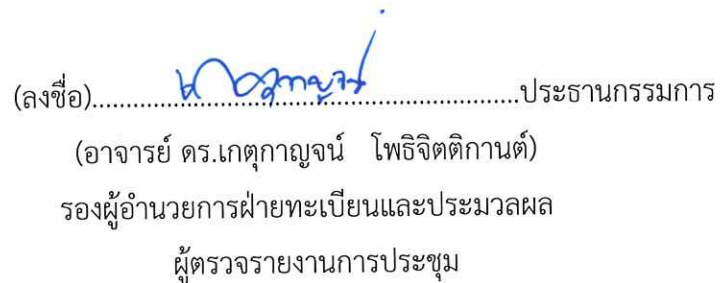 (ลงชื่อ)..............................................................ประธานกรรมการ
(อาจารย์ ดร.เกตุกาญจน์ โพธิจิตติกานต์)
รองผู้อำนวยการฝ่ายทะเบียนและประมวลผล
ผู้ตรวจรายงานการประชุม